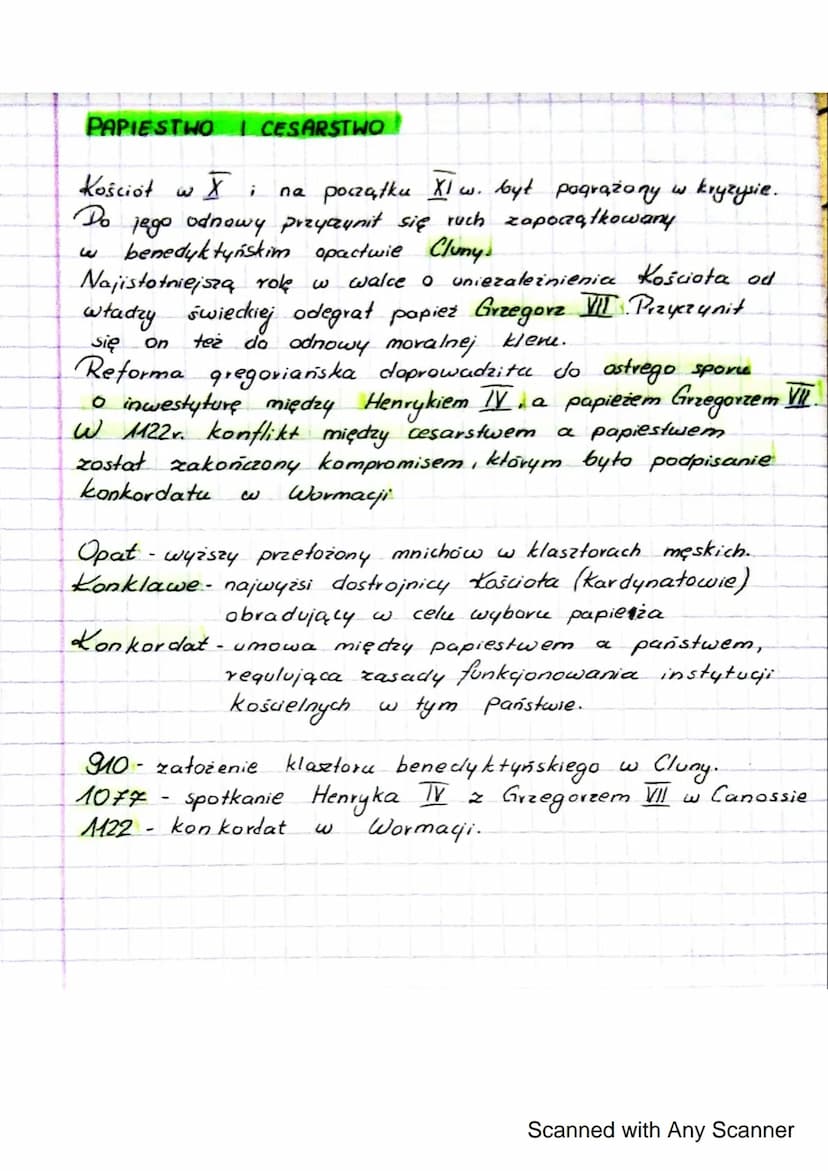 PAPIESTWO I CESARSTWO
Kościół w X i na początku XI w. był pogrążony w kryzysie.
Do jego odnowy przyczynił się ruch zapoczątkowany
w benedyktyńskim opactwie Cluny.
Najistotniejszą rolę w walce o uniezależnienia Kościoła od
władzy świeckiej odegrał papież Grzegorz VII. Przyczynił
się on też do odnowy moralnej kleru.
Reforma gregoriańska doprowadziła do ostrego sporu
o inwestyturę między Henrykiem IV, a papieżem Grzegorzem VII.
W 1122r. konflikt między cesarstwem a papiestwem
został zakończony kompromisem, którym było podpisanie
konkordatu w Wormacji
Opat - wyższy przełożony mnichów w klasztorach męskich.
Konklawe - najwyżsi dostrojnicy Kościoła (kardynałowie)
obradujący w celu wyboru papieża
Konkordat - umowa między papiestwem a państwem,
regulująca zasady funkcjonowania instytucji
kościelnych w tym Państwie.
910 - założenie klasztoru benedyktyńskiego w Cluny.
1077 - spotkanie Henryka IV z Grzegorzem VII w Canossie
1122 - konkordat w Wormacji.
Scanned with Any Scanner